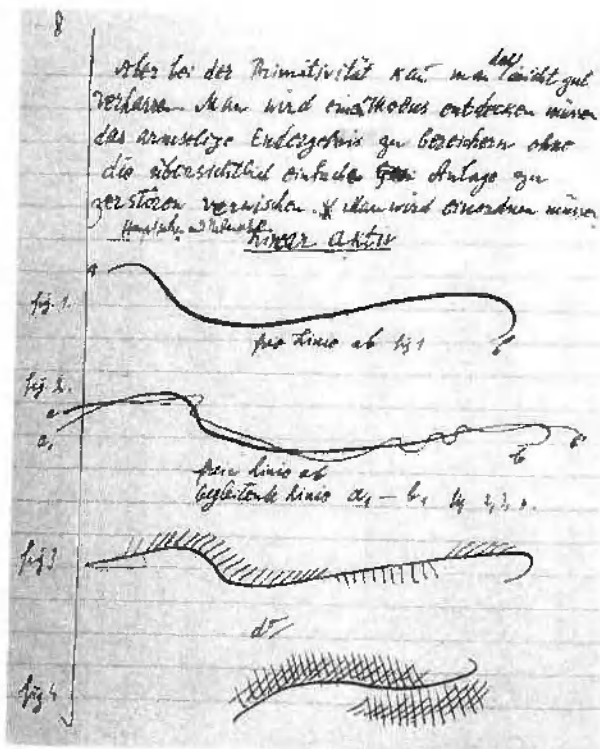 8
Aber bei der Primitivität kan man nicht gut
verharren. Man wird einen Modus entdecken müssen
das armselige Endergebnis zu bereichern ohne
die übersichtlich einfache Anlage zu
zerstören verwischen. Man wird einordnen müssen
Hauptsachen und
linear aktiv
a
fig. 1.
b
freie Linie ab fig 1
fig 2.
a
a₁
b
freie Linie ab
begleitende Linie a₁ – b₁
fig 3
fig 4